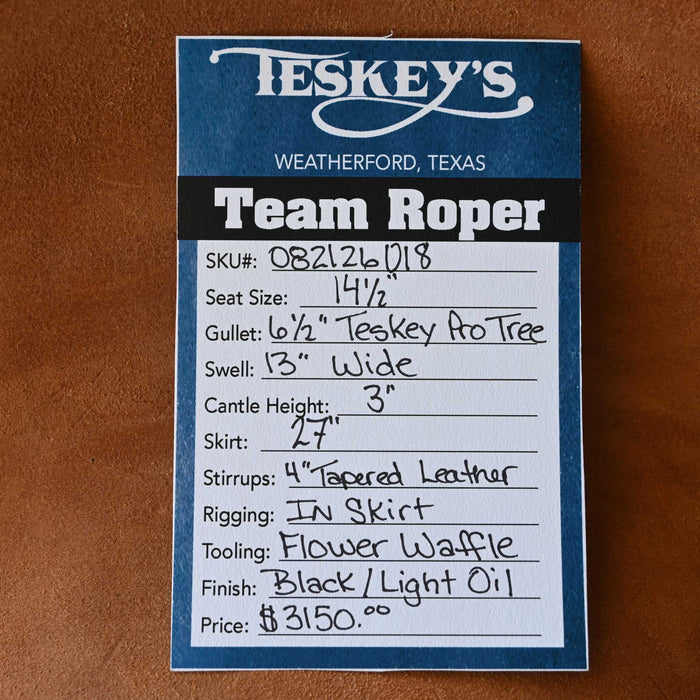 TESKEY'S
WEATHERFORD, TEXAS
Team Roper
SKU#: 082126018
Seat Size: 14 1/2"
Gullet: 6 1/2" Teskey Pro Tree
Swell: 13" Wide
Cantle Height: 3"
Skirt: 27"
Stirrups: 4" Tapered Leather
Rigging: IN Skirt
Tooling: Flower Waffle
Finish: Black/Light Oil
Price: $3150.00